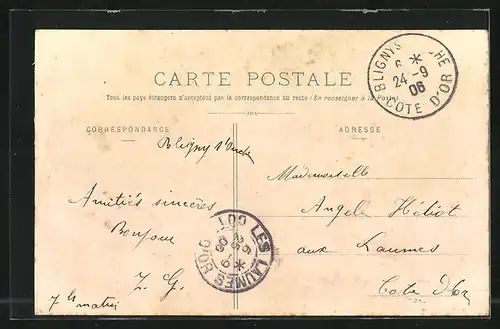 CARTE POSTALE
Tous les pays étrangers n'acceptent pas la correspondance au recto (Se renseigner à la Poste)
CORRESPONDANCE
ADRESSE
BLIGNY S CHE
6 *
24 -9
06
COTE D'OR
Bligny s/ Ouche
Amitiés sincères
Bonjour
Z. G.
7 h matin
Mademoiselle
Angele Héliot
aux Laumes
Cote d'Or
LES LAUMES
COT D'OR
6 *
25 -9
06